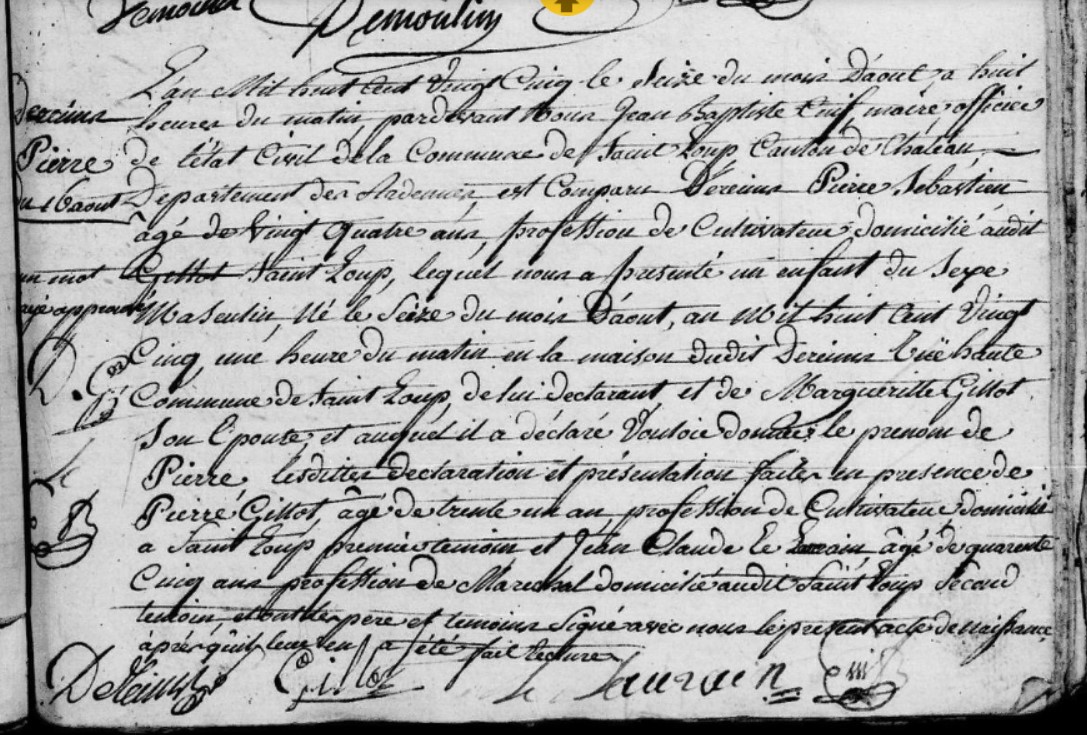 Demoulin
L'an Mil huit Cent Vingt Cinq le Seize du mois D'aout, a huit
Dereims
heures du matin pardevant Nous Jean Baptiste Cuif maire, officier
Pierre
de l'état Civil de la Commune de Saint Loup Canton de Chateau
du 16 aout
Departement des Ardennes, est Comparu Dereims Pierre Sebastien
âgé de Vingt quatre ans, profession de Cultivateur domicilié audit
un mot
Gillot Saint Loup, lequel nous a presenté un enfant du Sexe
rayé approuvé
Masculin, Né le Seize du mois D'aout, an Mil huit Cent Vingt
Cinq, une heure du matin en la maison dudit Dereims Ruë haute
Commune de Saint Loup, de lui declarant et de Margueritte Gillot
Son Epouse, et auquel il a déclaré Vouloir donner le prenom de
Pierre lesdittes declaration et présentation faites en presence de
Pierre Gillot, âgé de trente un an, profession de Cultivateur domicilié
a Saint Loup premier temoin et Jean Claude Le Laurain âgé de quarente
Cinq ans profession de Marechal domicilié audit Saint Loup Second
temoin, et ont les pere et temoins Signé avec nous le present acte de naissance
après qu'il leur en a été fait lecture
Dereims Gillot le Laurain Cuif